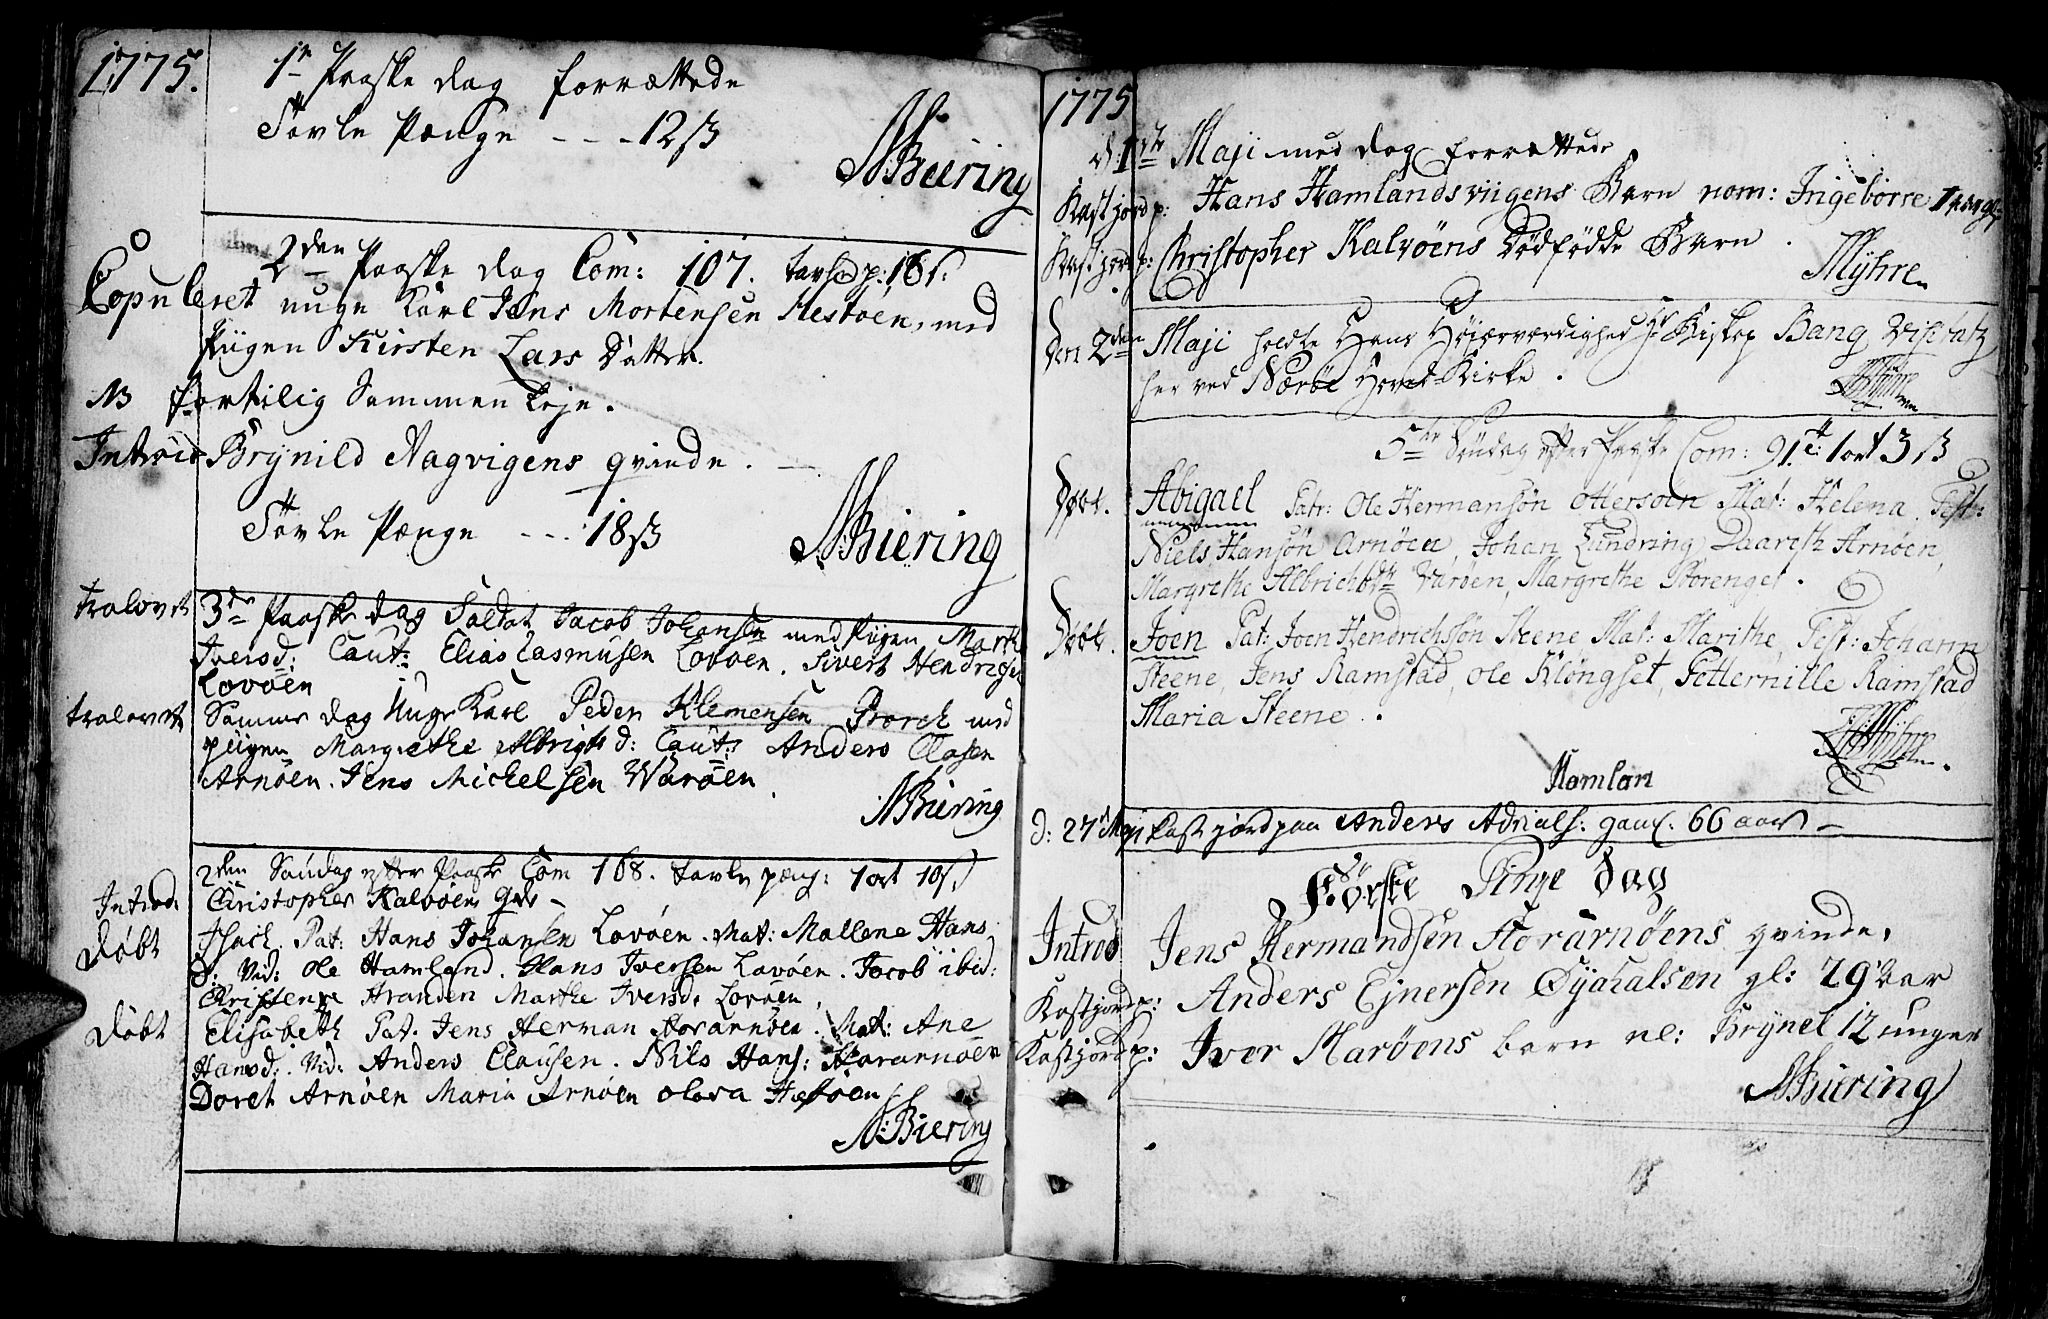 1775.
1te Paaske dag forrættede
Tavle Penge - - - 12 ß
N Biering
2den Paaske dag Com: 107. tavle p: 16 s.
Copuleret unge Karl Jens Mortensen Hestøen, med
Piigen Kirsten Lars Datter.
NB fortilig Sammen Leje.
Introd Brynild Aagvigens qvinde.
Tavle Penge - - - 18 ß
N Biering
trolovet 3de Paaske dag Soldat Jacob Johansen med Piigen Marth
Iversd: Caut: Elias Rasmusen Lovøen. Sivert Hendrigs
Lovøen
trolovet Samme dag Unge Karl Peder Klemensen Broch med
piigen Margrethe Albrigts d: Caut: Anders Olasen
Arnøen. Jens Michelsen Værøen.
N Biering
2den Søndag efter Paaske Com 168. tavle peng: 1 ort 10 s.
Introd. Christopher Kalvøens Qvd
Døbt Isach. Pat: Hans Johansen Lovøen. Mat: Mallene Hans
d: Vid: Ole Hamland. Hans Iversen Lovøen. Jacob ibid:
Christence Aranden Marthe Iversd. Lovøen.
Døbt Elisabeth Pat. Jens Herman Storarnøen. Mat: Ane
Hansd: Vid: Anders Clausen. Nils Hans: Storarnøen
Doret Arnøen Maria Arnøen Olava Hestøen
N: Biering
1775
d: 1ste Maji med dag forrættede
Kastjord p: Hans Hamlandsviigens Barn nom: Ingeborre
Kastjord p: Christopher Kalvøens Dødfødde Barn.
Myhre
Den 2den Maji holdte Hans Høiærværdighed Hr Biskop Bang Visitatz
her ved Nærøe Hoved Kirke.
5te Søndag efter Paaske Com: 91. 1 ort 3 ß
Døbt. Abigael Patr: Ole Hermansøn Ottersøen Mat: Helena. Test:
Niels Hansøn Arnøen, Johan Zundring Daareth Arnøen,
Margrethe Albrichtsdtr Værøen, Margrethe Borenget.
Døbt. Joen Pat: Joen Hendrichsøn Steene Mat: Marithe, Test: Johann
Steene, Jens Ramstad, Ole Kløngset, Petternille Ramstad
Maria Steene.
Myhre
Hamlan
d: 27 Maji kast jord paa Anders Adrials: gaml. 66 aar
Første Pinge Dag
Introd Jens Hermandsen Storarnøens qvinde,
Kastjord p: Anders Ejnersen Øyahalsen gl: 29 Aar
Kastjord p: Iver Marøens barn nl: Brynel 12 unger
N Biering